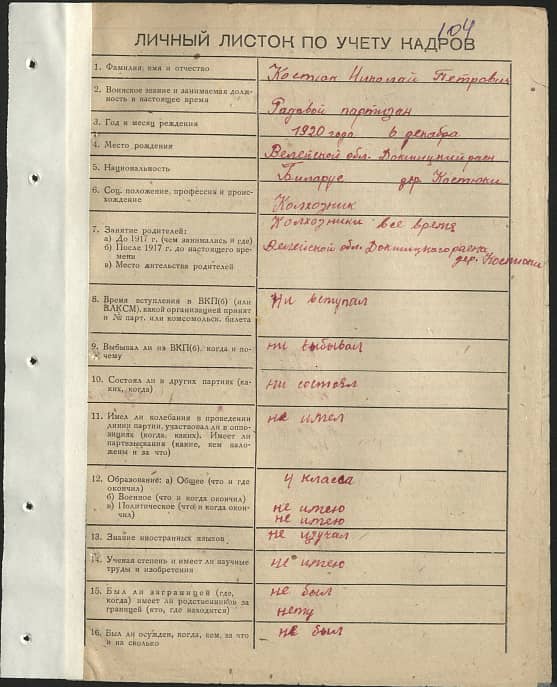 104
ЛИЧНЫЙ ЛИСТОК ПО УЧЕТУ КАДРОВ
1. Фамилия, имя и отчество
Костюк Николай Петрович
2. Воинское звание и занимаемая долж-
ность в настоящее время
Радовой партизан
3. Год и месяц рождения
1920 года 6 декабря
4. Место рождения
Велейской обл. Докшицкий раен
5. Национальность
Биларус дер. Костюки
6. Соц. положение, профессия и проис-
хождение
Колхозник
7. Занятие родителей:
а) До 1917 г. (чем занимались и где)
б) После 1917 г. до настоящего вре-
мени
в) Место жительства родителей
Колхозники все время
Велейской обл. Докшицкого раена
дер. Костюки
8. Время вступления в ВКП(б) (или
ВЛКСМ), какой организацией принят
и № парт. или комсомольск. билета
ни вступал
9. Выбывал ли из ВКП(б), когда и по-
чему
ни выбывал
10. Состоял ли в других партиях (ка-
ких, когда)
ни состоял
11. Имел ли колебания в проведении
линии партии, участвовал ли в оппо-
зициях (когда, каких). Имеет ли
партвзыскания (какие, кем нало-
жены и за что)
не имел
12. Образование: а) Общее (что и где
окончил)
б) Военное (что и когда окончил)
в) Политическое (что и когда окон-
чил)
4 класса
не имею
не имею
13. Знание иностранных языков
не изучал
14. Ученая степень и имеет ли научные
труды и изобретения
не имею
15. Был ли заграницей (где,
когда) имеет ли родственников за
границей (кто, где находится)
не был
нету
16. Был ли осужден, когда, кем, за что
и на сколько
не был